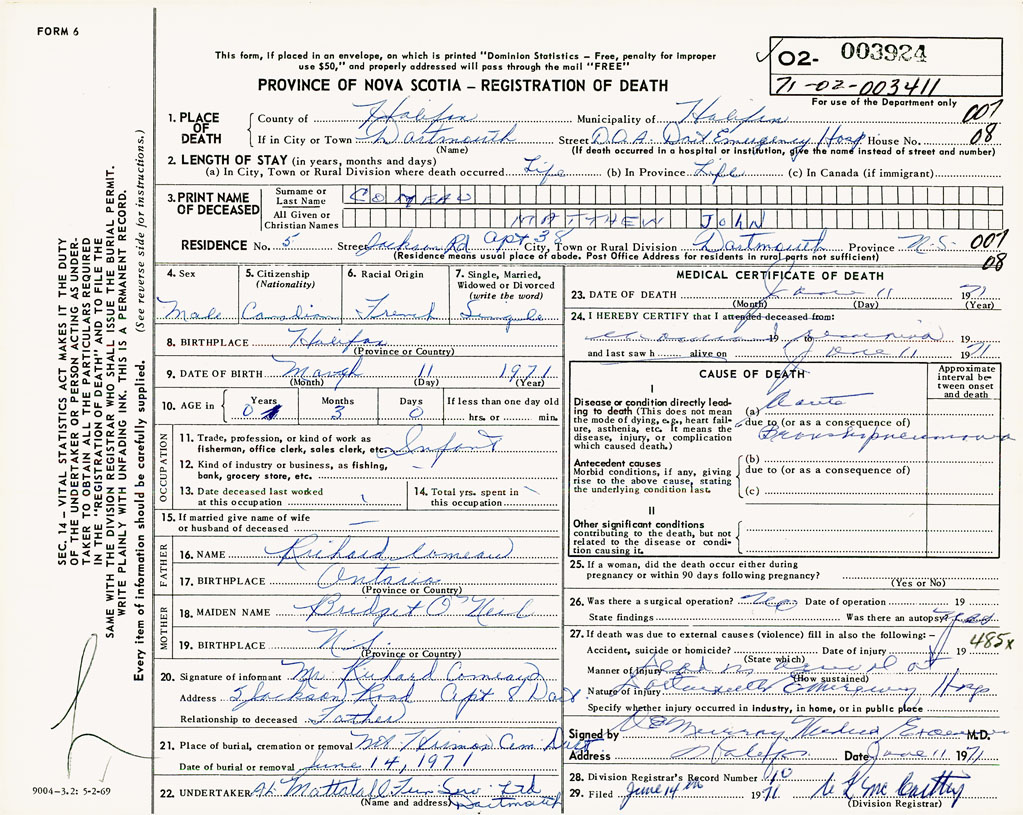 FORM 6
This form, if placed in an envelope, on which is printed "Dominion Statistics – Free, penalty for improper
use $50," and properly addressed will pass through the mail "FREE"
02- 003924
71-02-003411
PROVINCE OF NOVA SCOTIA – REGISTRATION OF DEATH
For use of the Department only
1. PLACE OF DEATH
County of Halifax Municipality of Halifax 007
If in City or Town Dartmouth Street D.O.A. Dart Emergency Hosp House No. 08
(Name) (If death occurred in a hospital or institution, give the name instead of street and number)
2. LENGTH OF STAY (in years, months and days)
(a) In City, Town or Rural Division where death occurred Life (b) In Province Life (c) In Canada (if immigrant)
3. PRINT NAME OF DECEASED
Surname or Last Name COMEAU
All Given or Christian Names MATTHEW JOHN
RESIDENCE No. 5 Street Jackson Rd Apt 38 City, Town or Rural Division Dartmouth Province N.S. 007
(Residence means usual place of abode. Post Office Address for residents in rural parts not sufficient) 08
4. Sex
Male
5. Citizenship (Nationality)
Canadian
6. Racial Origin
French
7. Single, Married, Widowed or Divorced (write the word)
Single
8. BIRTHPLACE Halifax
(Province or Country)
9. DATE OF BIRTH March 11 1971
(Month) (Day) (Year)
10. AGE in Years 0 Months 3 Days 0 If less than one day old
hrs. or min.
OCCUPATION
11. Trade, profession, or kind of work as
fisherman, office clerk, sales clerk, etc. Infant
12. Kind of industry or business, as fishing,
bank, grocery store, etc.
13. Date deceased last worked
at this occupation
14. Total yrs. spent in
this occupation
15. If married give name of wife
or husband of deceased
FATHER
16. NAME Richard Comeau
17. BIRTHPLACE Ontario
(Province or Country)
MOTHER
18. MAIDEN NAME Bridget O'Neil
19. BIRTHPLACE N.S.
(Province or Country)
20. Signature of informant Mr. Richard Comeau
Address 5 Jackson Road Apt 8 Dart
Relationship to deceased Father
21. Place of burial, cremation or removal Mt. Hermon Cem. Dart
Date of burial or removal June 14, 1971
22. UNDERTAKER A.L. Mattatall Fun. Serv. Ltd
(Name and address) Dartmouth
MEDICAL CERTIFICATE OF DEATH
23. DATE OF DEATH June 11 1971
(Month) (Day) (Year)
24. I HEREBY CERTIFY that I attended deceased from:
19 to
and last saw h alive on June 11 1971
CAUSE OF DEATH
Approximate interval between onset and death
I
Disease or condition directly leading to death (This does not mean the mode of dying, e.g., heart failure, asthenia, etc. It means the disease, injury, or complication which caused death.)
(a) Acute
due to (or as a consequence of)
Bronchopneumonia
Antecedent causes
Morbid conditions, if any, giving rise to the above cause, stating the underlying condition last.
(b)
due to (or as a consequence of)
(c)
II
Other significant conditions
contributing to the death, but not related to the disease or condition causing it.
25. If a woman, did the death occur either during
pregnancy or within 90 days following pregnancy?
(Yes or No)
26. Was there a surgical operation? No Date of operation 19
State findings Was there an autopsy? Yes
27. If death was due to external causes (violence) fill in also the following: – 485x
Accident, suicide or homicide? Date of injury 19
(State which)
Manner of injury Dead on arrival at
(How sustained)
Nature of injury Dartmouth Emergency Hosp
Specify whether injury occurred in industry, in home, or in public place
Signed by Murray Medical Examiner M.D.
Address Halifax Date June 11 1971
28. Division Registrar's Record Number
29. Filed June 14th 1971
(Division Registrar)
SEC. 14 – VITAL STATISTICS ACT MAKES IT THE DUTY
OF THE UNDERTAKER OR PERSON ACTING AS UNDER-
TAKER TO OBTAIN ALL THE PARTICULARS REQUIRED
IN THE "REGISTRATION OF DEATH" AND TO FILE THE
SAME WITH THE DIVISION REGISTRAR WHO SHALL ISSUE THE BURIAL PERMIT.
WRITE PLAINLY WITH UNFADING INK. THIS IS A PERMANENT RECORD.
Every item of information should be carefully supplied. (See reverse side for instructions.)
9004-3.2: 5-2-69